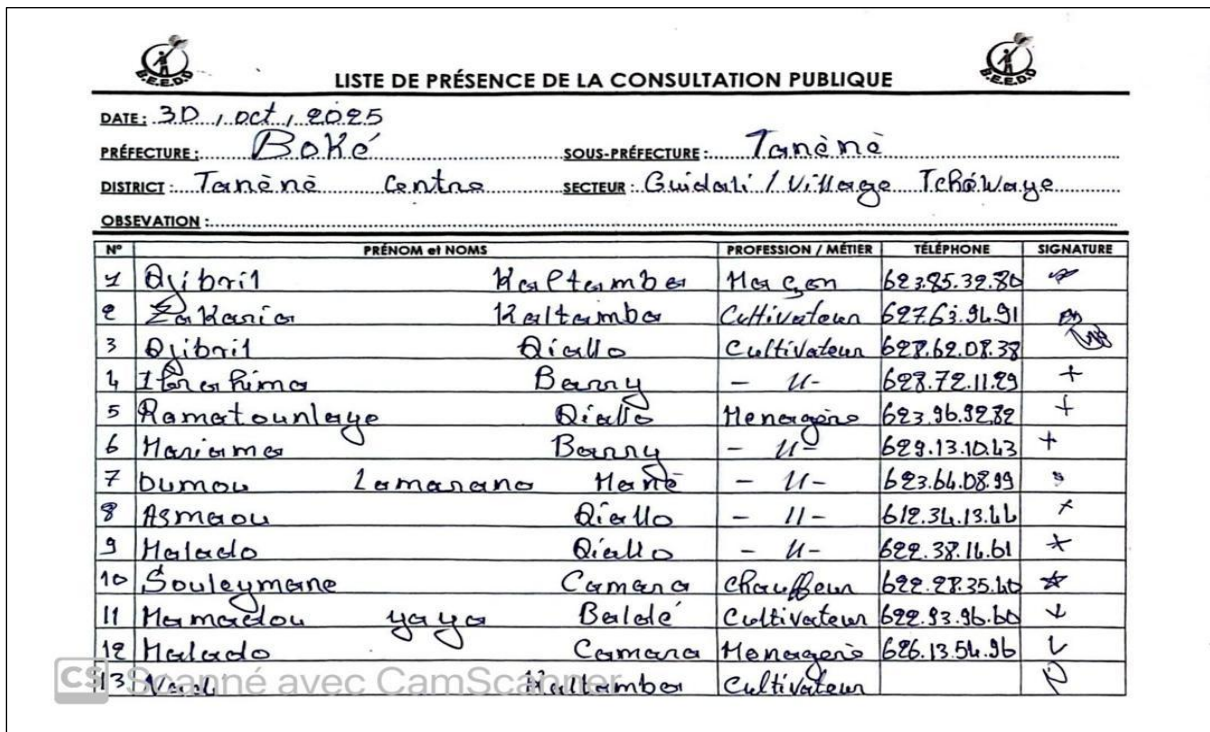 B.E.E.D.D
B.E.E.D.D
LISTE DE PRÉSENCE DE LA CONSULTATION PUBLIQUE
DATE : 30 / oct / 2025
PRÉFECTURE : Boké SOUS-PRÉFECTURE : Tanènè
DISTRICT : Tanènè Centre SECTEUR : Guidali / Village Tchéwaye
OBSEVATION :
N° PRÉNOM et NOMS PROFESSION / MÉTIER TÉLÉPHONE SIGNATURE
1 Djibril Kaltamba Maçon 623.85.32.80
2 Zakaria Kaltamba Cultivateur 627.63.94.91
3 Djibril Diallo Cultivateur 628.62.08.38
4 Ibrahima Barry - 11 - 628.72.11.29 +
5 Ramatoulaye Diallo Menagère 623.96.92.82 +
6 Mariama Barry - 11 - 629.13.10.43 +
7 Oumou Lamarana Manè - 11 - 623.64.08.99
8 Asmaou Diallo - 11 - 612.34.13.44
9 Malado Diallo - 11 - 622.38.16.61
10 Souleymane Camara Chauffeur 622.28.35.40
11 Mamadou yaya Baldé Cultivateur 622.93.96.60
12 Malado Camara Menagère 626.13.54.96
13 Kaltamba Cultivateur
CS Scanné avec CamScanner